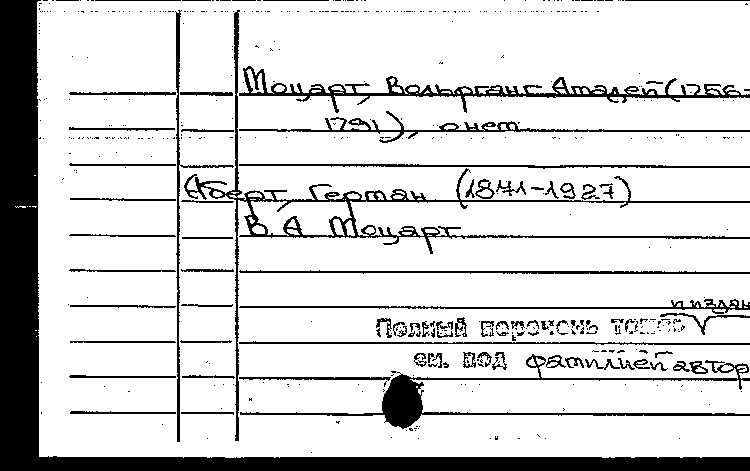 Моцарт, Вольфганг Амадей (1756-
1791), о нем
Аберт, Герман (1871-1927)
В. А Моцарт
и издан
Полный перечень томов
см. под фамилией автор